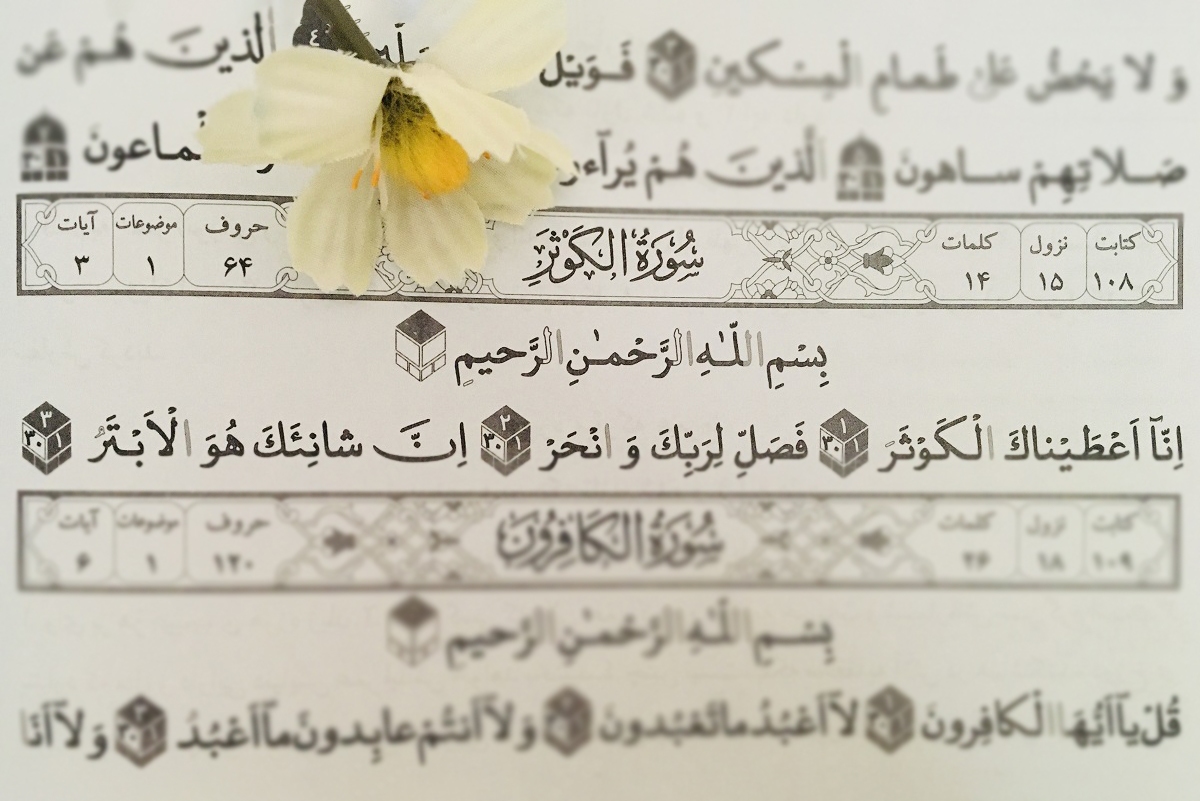 وَ لا يَحُضُّ عَلىٰ طَعامِ الْمِسْكينِ ٣ فَوَيْلٌ ٤ الَّذينَ هُمْ عَن
صَلاتِهِمْ ساهونَ الَّذينَ هُمْ يُرآءو الْماعونَ
كتابت نزول كلمات سُورَةُ الكَوْثَرِ حروف موضوعات آيات
١٠٨ ١٥ ١۴ ۶۴ ١ ٣
بِسْمِ اللّٰهِ الرَّحْمٰنِ الرَّحيمِ
اِنّآ اَعْطَيْناكَ الْكَوْثَرَ ١ ٣٠ ١ فَصَلِّ لِرَبِّكَ وَ انْحَرْ ٢ ٣٠ ١ اِنَّ شانِئَكَ هُوَ الْاَبْتَرُ ٣ ٣٠ ١
كتابت نزول كلمات سُورَةُ الكَافِرُونَ حروف موضوعات آيات
١٠٩ ١٨ ٢۶ ١٢٠ ١ ۶
بِسْمِ اللّٰهِ الرَّحْمٰنِ الرَّحيمِ
قُلْ يآ اَيُّهَا الْكافِرونَ ١ لآ اَعْبُدُ ما تَعْبُدونَ ٢ وَ لآ اَنتُمْ عابِدونَ مآ اَعْبُدُ ٣ وَ لآ اَنَا